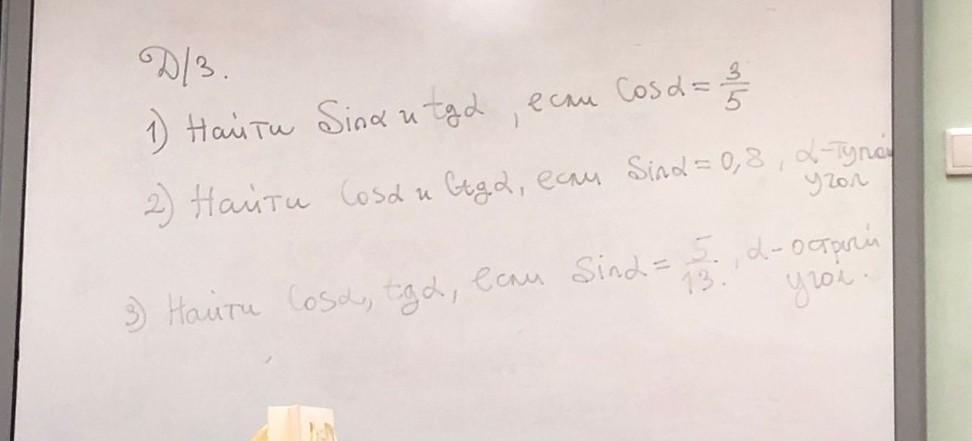 Д/З.
1) Найти Sinα и tgα, если Cosα = 3/5
2) Найти Cosα и Ctgα, если Sinα = 0,8, α - тупой угол
3) Найти Cosα, tgα, если Sinα = 5/13, α - острый угол.